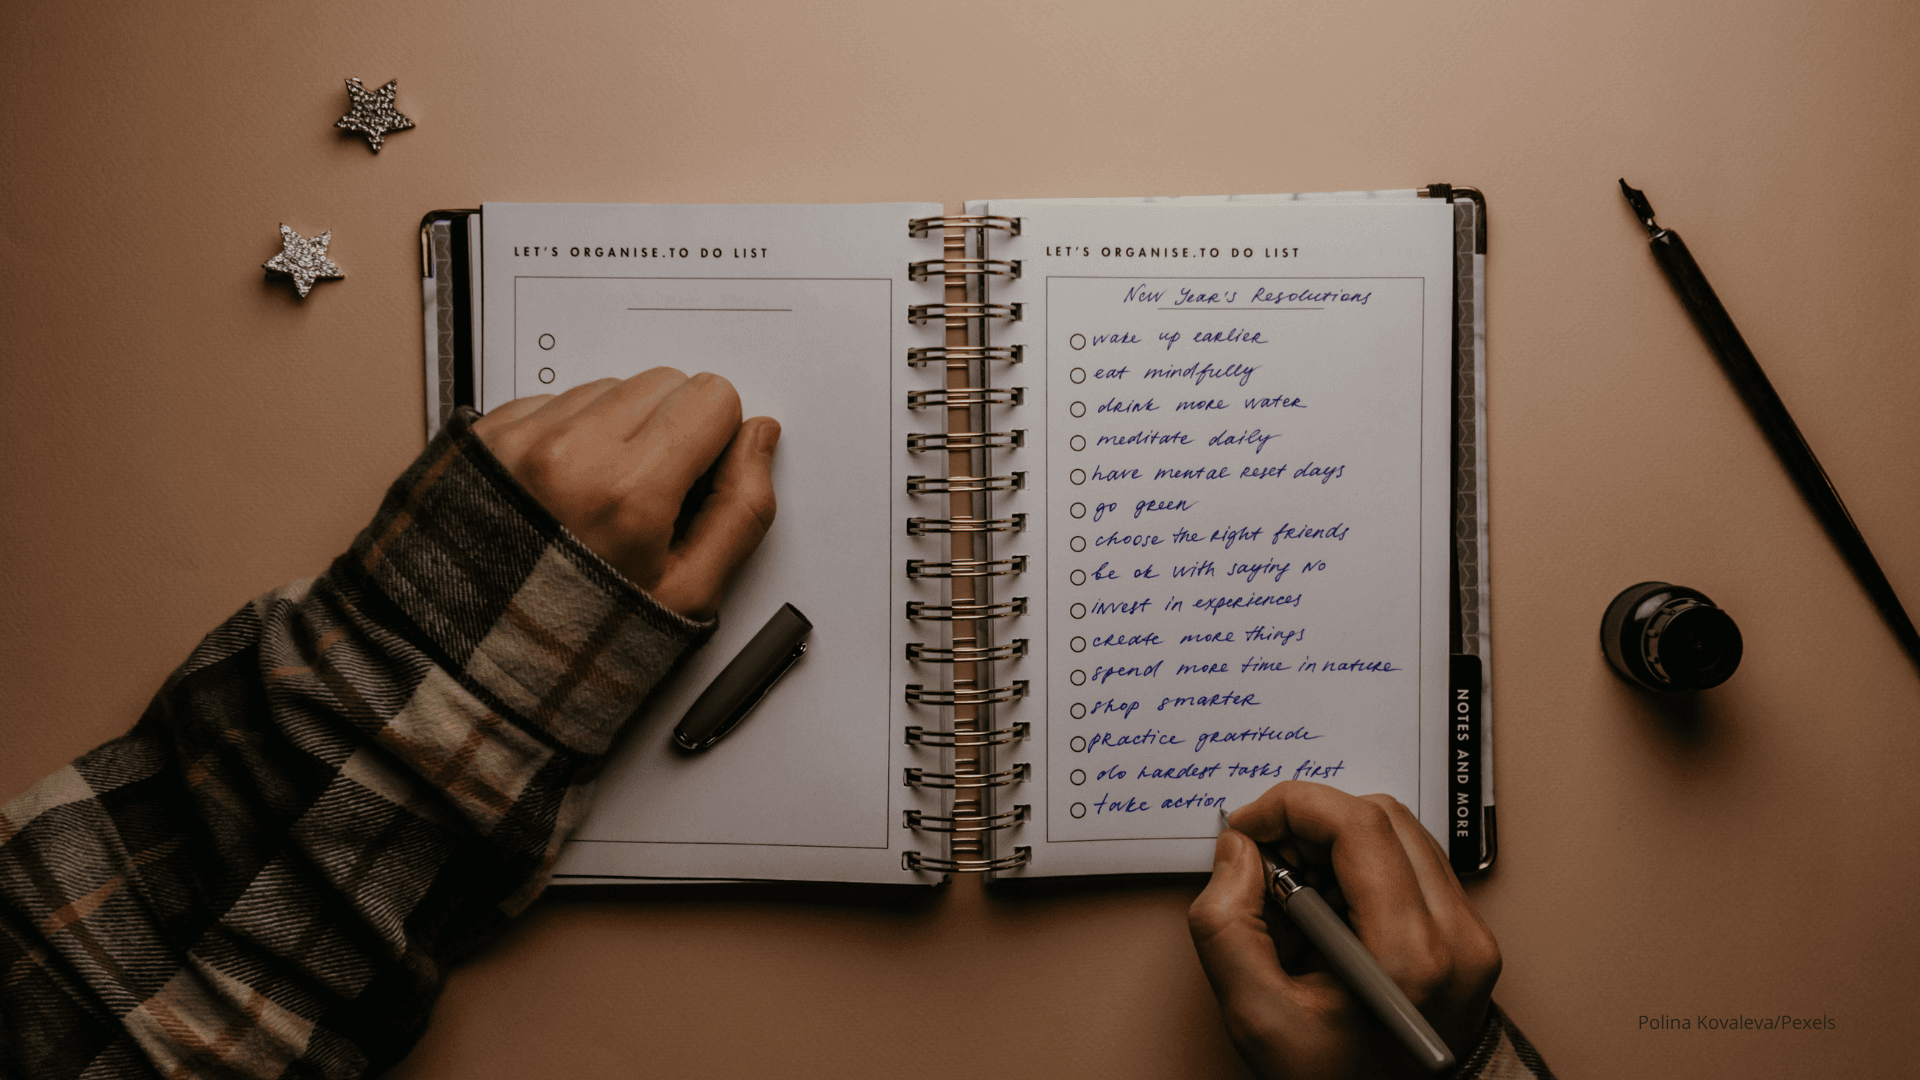 LET'S ORGANISE.TO DO LIST
LET'S ORGANISE.TO DO LIST
New Year's Resolutions
wake up earlier
eat mindfully
drink more water
meditate daily
have mental reset days
go green
choose the right friends
be ok with saying no
invest in experiences
create more things
spend more time in nature
shop smarter
practice gratitude
do hardest tasks first
take action
NOTES AND MORE
Polina Kovaleva/Pexels